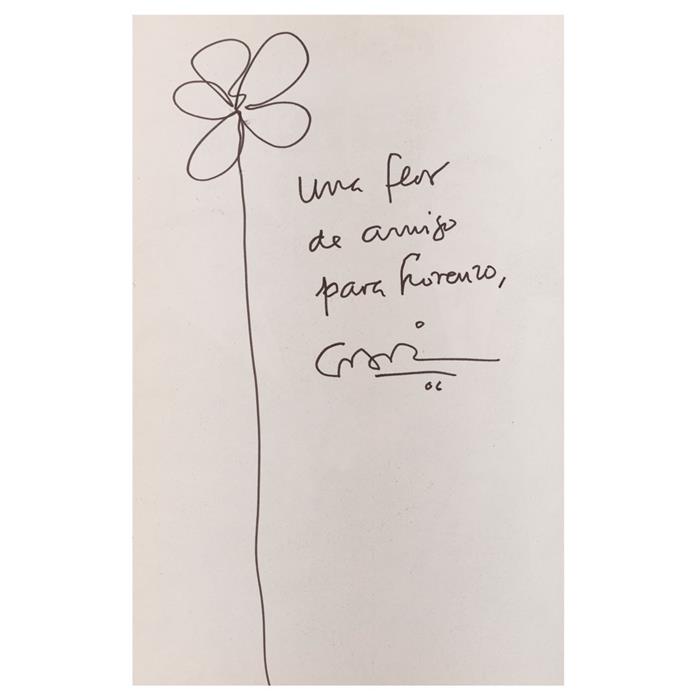 una flor
de amigo
para Lorenzo,
06